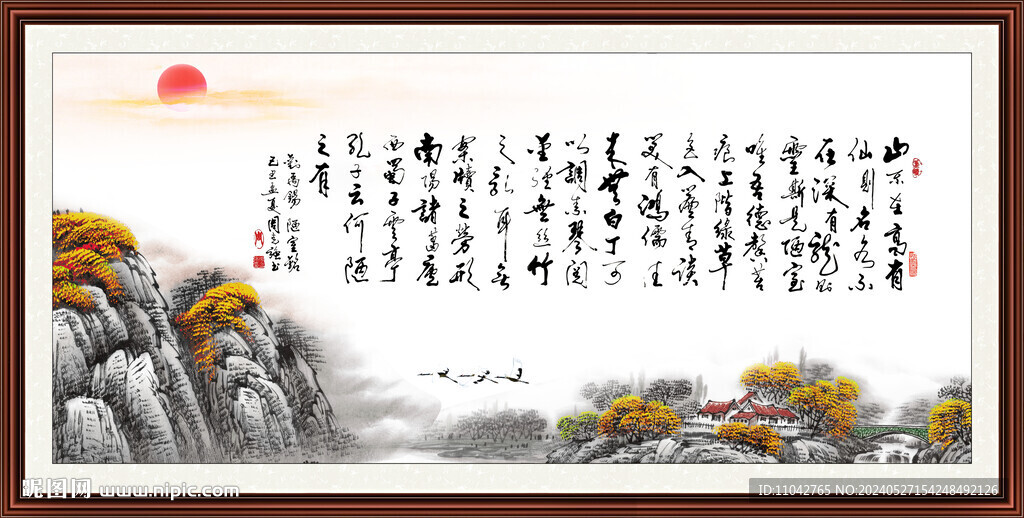 山不在高有
仙則名水不
在深有龍則
靈斯是陋室
唯吾德馨苔
痕上階緑草
色入簾青談
笑有鴻儒往
来無白丁可
以調素琴閱
金經無絲竹
之亂耳無
案牘之勞形
南陽諸葛廬
西蜀子雲亭
孔子云何陋
之有
劉禹錫 陋室銘
己丑孟夏周書
昵图网 www.nipic.com
ID:11042765 NO:20240527154248492126